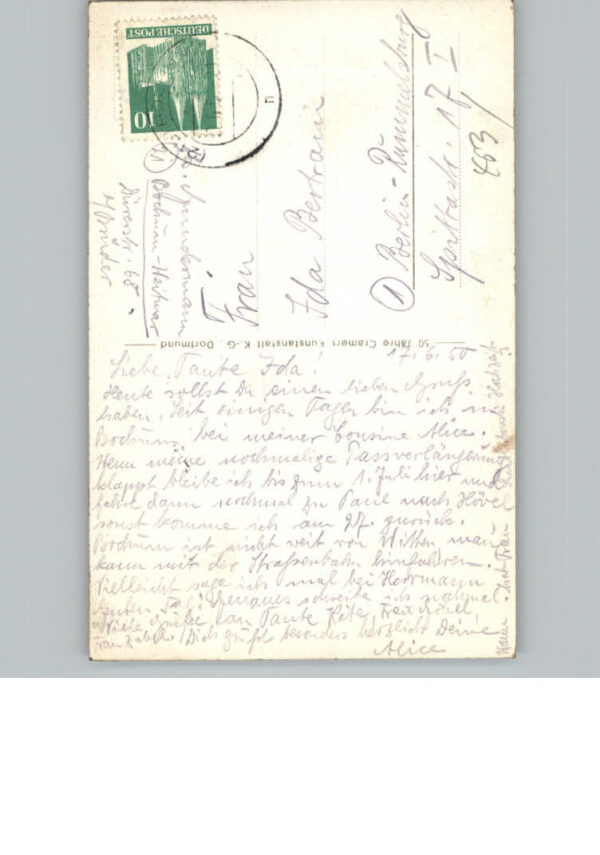 DEUTSCHE POST
10
Bochum-Weitmar
Dürerstr. 68
b/Bruder
Frau
Ida Bertram
1 Berlin-Rummelsburg
Spittastr. 17 I
453
50 Jahre Cramers Kunstanstalt K.-G., Dortmund
17.6.50
Liebe Tante Ida!
Heute sollst Du einen lieben Gruß
haben. Seit einigen Tagen bin ich in
Bochum bei meiner Cousine Alice.
Wenn meine nochmalige Passverlängerung
klappt bleibe ich bis zum 1. Juli hier und
fahre dann nochmal zu Paul nach Hövel
sonst komme ich am 27. zurück.
Bochum ist nicht weit von Witten man
kann mit der Strassenbahn hinfahren.
Vielleicht sage ich mal bei Herrmann
guten Tag. Genaues schreibe ich nochmal.
Viele Grüße an Tante Käte, Frau
Frau Dich grüßt besonders herzlich Deine
Alice
hat Frau Hochzeit